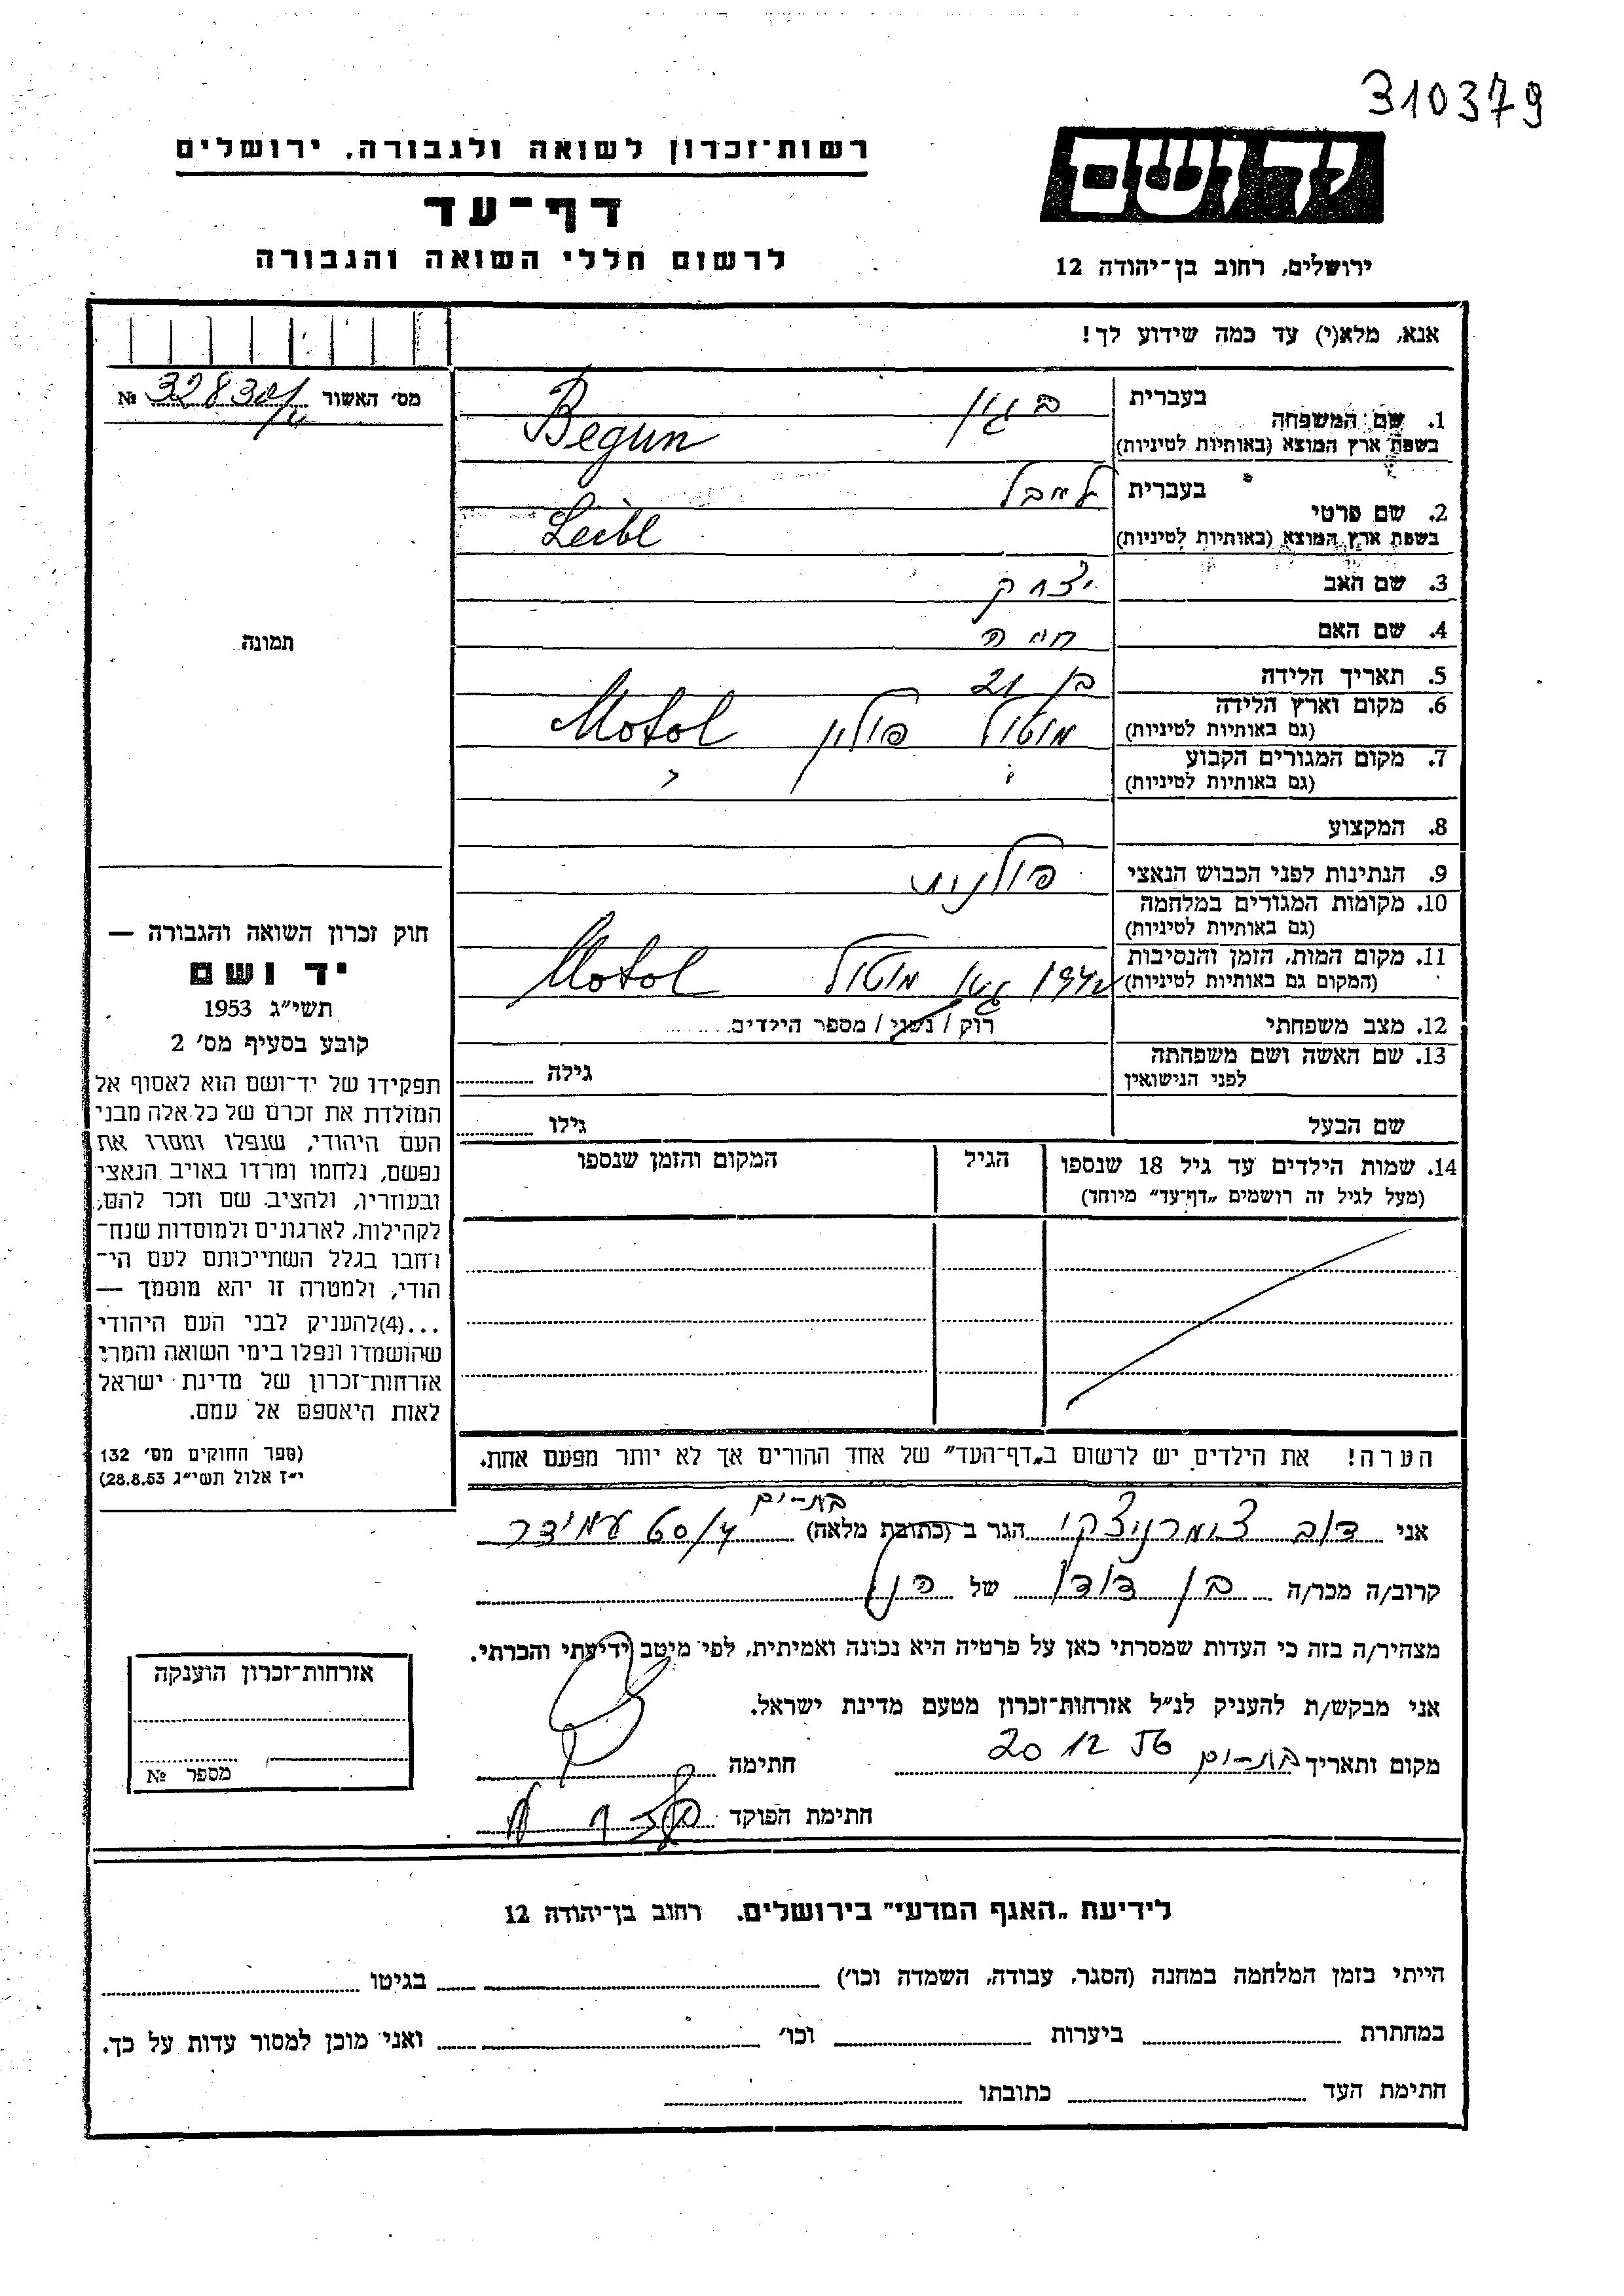 310379
יד ושם
רשות־זכרון לשואה ולגבורה, ירושלים
דף־עד
לרשום חללי השואה והגבורה
ירושלים, רחוב בן־יהודה 12
אנא, מלא(י) עד כמה שידוע לך!
מס' האשור № 32830/
1. שם המשפחה בעברית בגון
בשפת ארץ המוצא (באותיות לטיניות) Begun
2. שם פרטי בעברית לייבל
בשפת ארץ המוצא (באותיות לטיניות) Leibl
3. שם האב יצחק
4. שם האם חיה
5. תאריך הלידה בן 21
6. מקום וארץ הלידה מוטול פולין Motol
(גם באותיות לטיניות)
7. מקום המגורים הקבוע " "
(גם באותיות לטיניות)
8. המקצוע
9. הנתינות לפני הכבוש הנאצי פולנית
10. מקומות המגורים במלחמה
(גם באותיות לטיניות)
11. מקום המות, הזמן והנסיבות 1942 גטו מוטול Motol
(המקום גם באותיות לטיניות)
12. מצב משפחתי רוק / נשוי / מספר הילדים
13. שם האשה ושם משפחתה גילה
לפני הנישואין
שם הבעל גילו
14. שמות הילדים עד גיל 18 שנספו הגיל המקום והזמן שנספו
(מעל לגיל זה רושמים „דף־עד" מיוחד)
הערה! את הילדים יש לרשום ב„דף־העד" של אחד ההורים אך לא יותר מפעם אחת.
תמונה
חוק זכרון השואה והגבורה —
יד ושם
תשי"ג 1953
קובע בסעיף מס' 2
תפקידו של יד־ושם הוא לאסוף אל
המולדת את זכרם של כל אלה מבני
העם היהודי, שנפלו ומסרו את
נפשם, נלחמו ומרדו באויב הנאצי
ובעוזריו, ולהציב שם וזכר להם,
לקהילות, לארגונים ולמוסדות שנח־
רבו בגלל השתייכותם לעם הי־
הודי, ולמטרה זו יהא מוסמך —
...(4)להעניק לבני העם היהודי
שהושמדו ונפלו בימי השואה והמרי
אזרחות־זכרון של מדינת ישראל
לאות היאספם אל עמם.
(ספר החוקים מס' 132
י"ז אלול תשי"ג 28.8.53)
בת-ים
אני דוב צומרניצקי הגר ב (כתובת מלאה) 60/4 עמידר
קרוב/ה מכר/ה בן דודו של הנ"ל
מצהיר/ה בזה כי העדות שמסרתי כאן על פרטיה היא נכונה ואמיתית, לפי מיטב ידיעתי והכרתי.
אני מבקש/ת להעניק לנ"ל אזרחות־זכרון מטעם מדינת ישראל.
מקום ותאריך בת-ים 20 12 56 חתימה
חתימת הפוקד
אזרחות־זכרון הוענקה
מספר №
לידיעת „האגף המדעי" בירושלים, רחוב בן־יהודה 12
הייתי בזמן המלחמה במחנה (הסגר, עבודה, השמדה וכו') בגיטו
במחתרת ביערות וכו' ואני מוכן למסור עדות על כך.
חתימת העד כתובתו